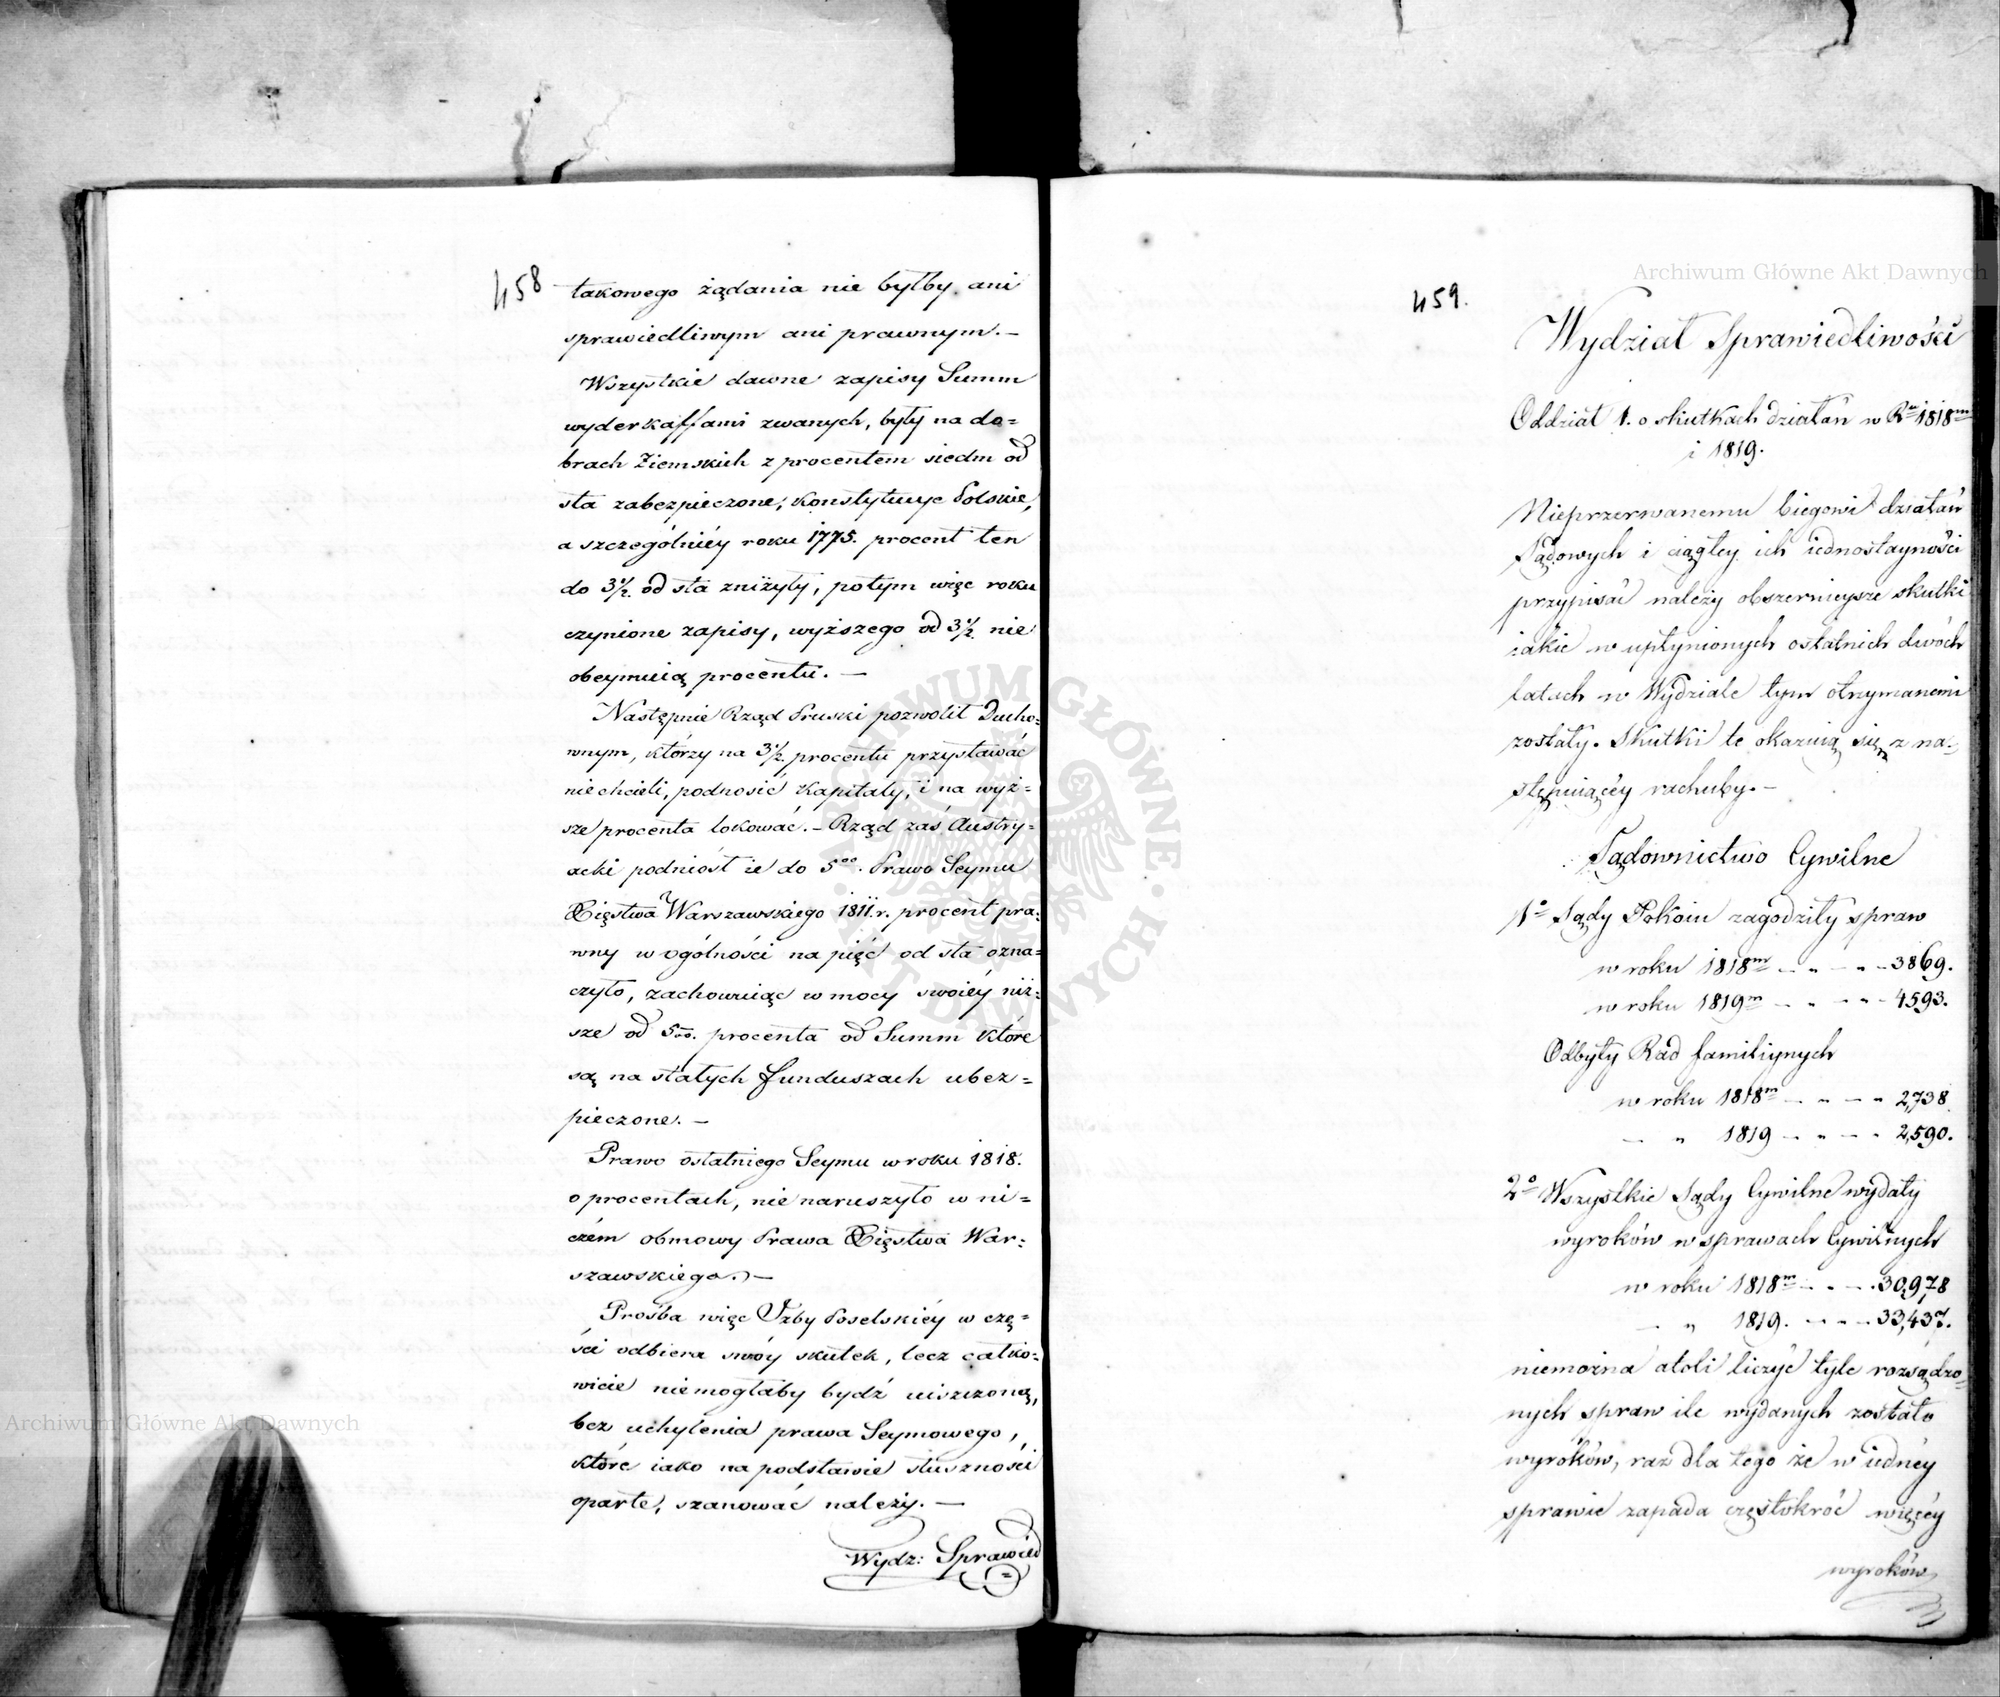 458
takowego żądania nie byłby ani
sprawiedliwym ani prawnym. —
Wszystkie dawne zapisy Summ
wyderkaffami zwanych, były na do=
brach Ziemskich z procentem siedm od
sta zabezpieczone, Konstytucye Polskie,
a szczególniéy roku 1775. procent ten
do 3 1/2. od sta zniżyły, potym więc roku
czynione zapisy, wyższego od 3 1/2 nie
obeymuią procentu. —
Następnie Rząd Pruski pozwolił Ducho=
wnym, którzy na 3 1/2 procentu przystawać
niechcieli, podnosić Kapitały, i na wyż=
sze procenta lokować. — Rząd zaś Austry=
acki podniósł ie do 5 00. Prawo Seymu
Xięstwa Warszawskiego 1811. r. procent pra=
wny w ogólności na pięć od sta ozna=
czyło, zachowuiąc w mocy swoiéy niż=
sze od 5 00. procenta od Summ które
są na stałych funduszach ubez=
pieczone. —
Prawo ostatniego Seymu w roku 1818.
o procentach, nie naruszyło w ni=
czém obmowy Prawa Xięstwa War=
szawskiego. —
Prośba więc Izby Poselskiéy w czę=
ści odbiera swóy skutek, lecz całko=
wicie niemogłaby bydź uiszczoną,
bez uchylenia prawa Seymowego,
które iako na podstawie słuszności
oparte, szanować należy. —
Wydz: Sprawied
459.
Wydział Sprawiedliwości
Oddział 1. o skutkach działań w Ru 1818m
i 1819.
Nieprzerwanemu biegowi działań
Sądowych i ciągłey ich iednostayności
przypisać należy obszernieysze skutki
iakie w upłynionych ostatnich dwóch
latach w Wydziale tym otrzymanemi
zostały. Skutki te okazuią się z na=
stępuiącéy rachuby. —
Sądownictwo Cywilne
1o Sądy Pokoiu zagodziły spraw
w roku 1818m - - - - - 3869.
w roku 1819m - - - - - 4593.
Odbyły Rad familiynych
w roku 1818m - - - - 2,738.
— " 1819 - - - - 2,590.
2o Wszystkie Sądy Cywilne wydały
wyroków w sprawach Cywilnych
w roku 1818m - - - 30,978
— " 1819. - - - 33,437.
niemożna atoli liczyć tyle rozsądzo=
nych spraw ile wydanych zostało
wyroków, raz dla tego że w iednéy
sprawie zapada częstokroć więcéy
wyroków
Archiwum Główne Akt Dawnych
Archiwum Główne Akt Dawnych
ARCHIWUM GŁÓWNE AKT DAWNYCH